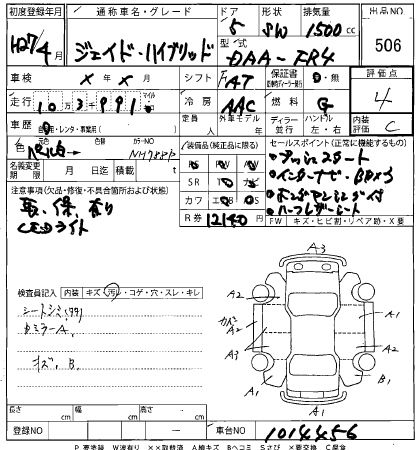 初度登録年月 通称車名・グレード ドア 形状 排気量 出品NO
H27/4月 ジェイド・ハイブリッド 5 SW 1500cc 506
型式 DAA-FR4
車検 × 年 × 月 シフト FAT 保証書 有・無 評価点
走行 10万3千991 マイル km 冷房 AAC 燃料 G 4
車歴 自家・レンタ・事業用( ) 定員 人 外車モデル 年 ディーラー 並行 ハンドル 左・右 内装評価 C
色 カラーNO NH788P
色替 装備品(純正品に限る) セールスポイント(正常に機能するもの)
名義変更期限 月 日 積載 SR ナビ ・プッシュスタート
注意事項(欠品・修復・不具合箇所および状態) カワ ・インターナビ・Bカメラ
取、保、有り R券 12140 ・ハーフレザーシート
LEDライト FW キズ・ヒビ割・リペア跡・X要
検査員記入 内装 キズ・汚レ・コゲ・穴・スレ・キレ
シートシミ(99)
ミラーA
キズ、B
A3
A2 A1
A3 A2
A1 B1
A1
長さ cm 幅 cm 高さ cm
登録NO ― 車台NO 1014456
P 要塗装 W波有り ××取替済 A線キズ Bヘコミ Sさび ×要交換 C腐食